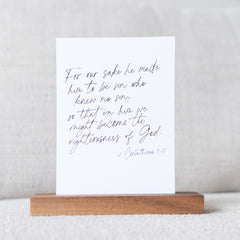 For our sake he made
him to be sin who
knew no sin,
so that in him we
might become the
righteousness of God.
2 Corinthians 5:21